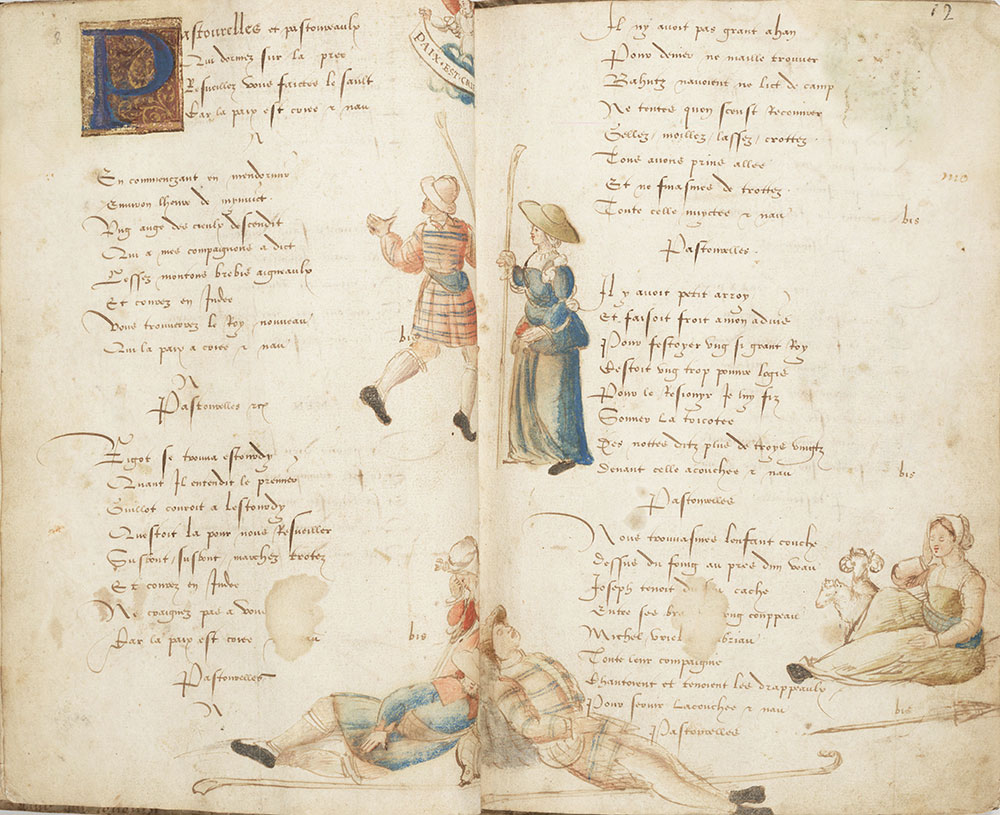 Pastourelles et pastoureaulx
Qui dormez sur la pree
Resueillez vous faictes le sault
Car la paix est criee & nau
PAIX·EST·CRI
En commenczant en mendormir
Enuiron lheure de mynuict
Vng ange des cieulx descendit
Qui a mes compagnons a dict
Lessez moutons brebis aigneaulx
Et courez en Judee
Vous trouuerez le Roy nouueau
Qui la paix a criee & nau
bis
Pastourelles
Rigot se trouua estourdy
Quant Il entendit le premier
Guillot couroit a lestourdy
Questoit la pour nous Resueiller
Susbout susbout marchez trotez
Et courez en Judee
Ne craignez pas a
Car la paix est criee nau
bis
Pastourelles
12
Il ny auoit pas grant ahan
Pour denier ne maille trouuer
Bahutz nauoient ne lict de camp
Ne tentes quon sceust Recouurer
Gellez moillez lassez crottez
Tous auons prins allee
Et ne finasmes de trottez
Toute celle nuyctee & nau
bis
Pastourelles
Il y auoit petit arroy
Et faisoit froit a mon aduis
Pour festoyer vng si grant Roy
Cestoit vng trop pouure logis
Pour le Resiouyr Je luy fiz
Sonner la tricotee
Des nottes ditz plus de troys vingtz
Deuant celle acouchee & nau
bis
Pastourelles
Nous trouuasmes lenfant couche
Dessus du foing au pres dun veau
Joseph tenoit cache
Entre ses long couppeau
Michel vriel
Toute leur compaignie
Chantoient et tenoient les drappeaulx
Pour seruir Lacouchee & nau
bis
Pastourelles